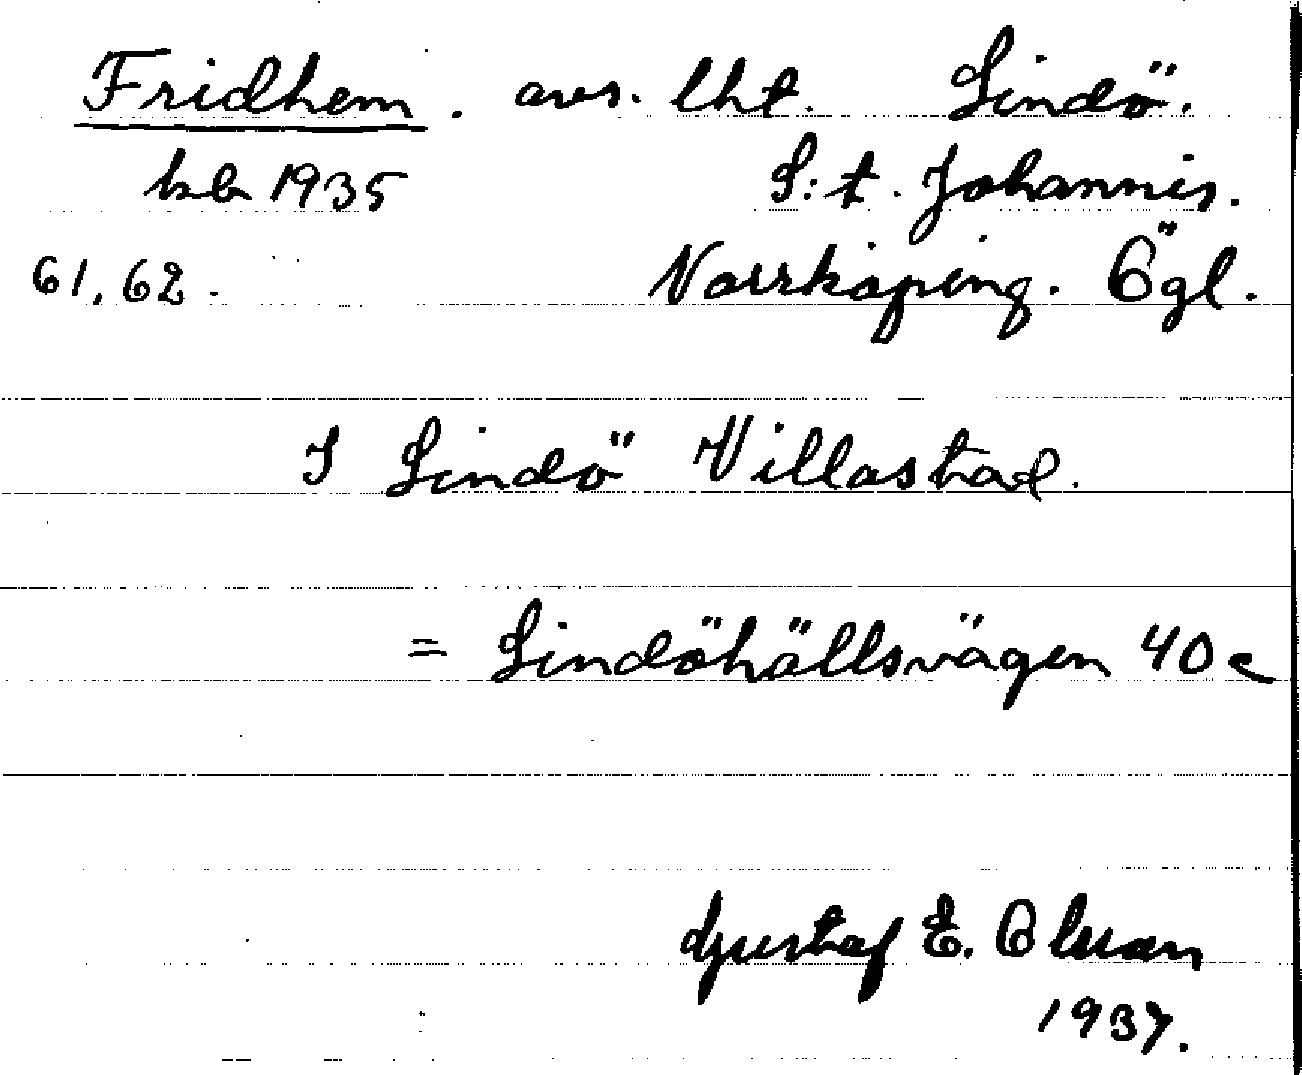 Fridhem. avs. lht. Lindö.
hb 1935 S:t. Johannis.
61, 62. Norrköping. Ögl.
I Lindö Villastad.
= Lindöhällsvägen 40 c
Gustaf E. Olsson
1937.